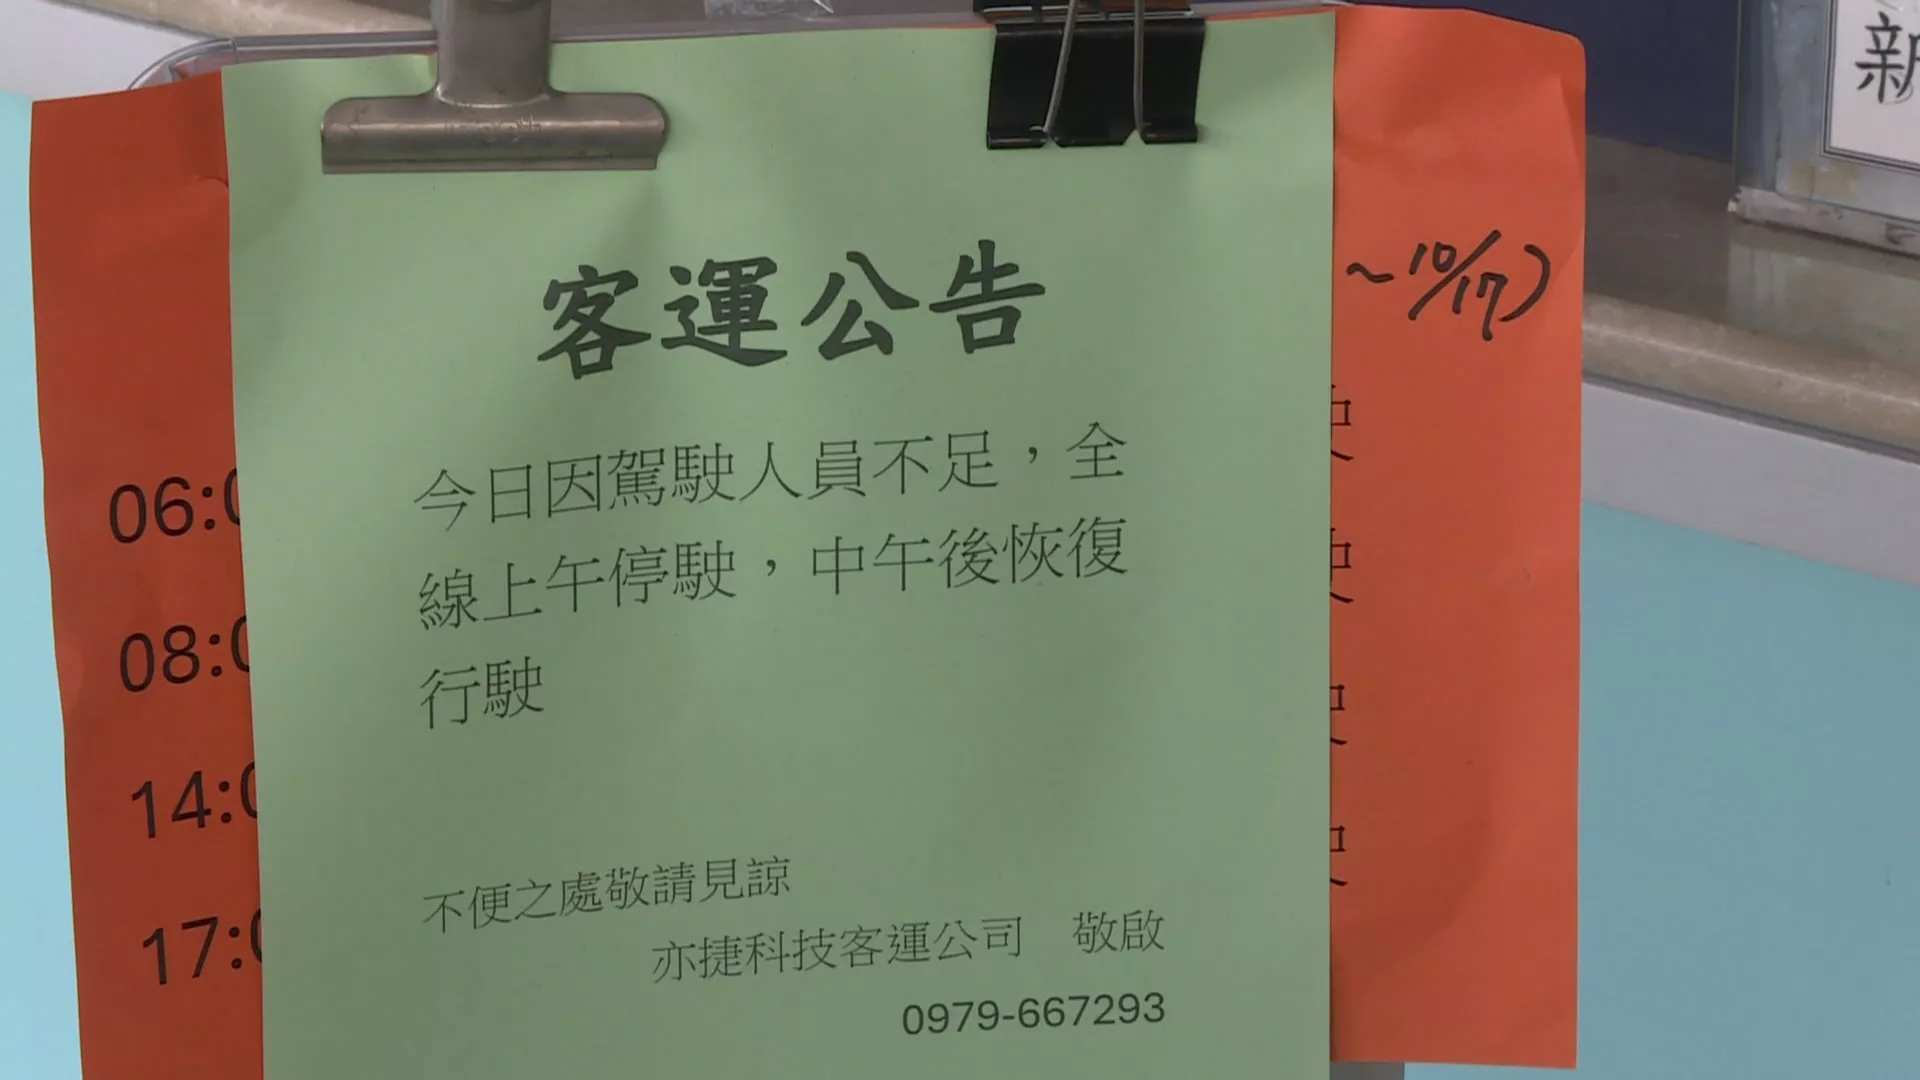 新
~10/17)
客運公告
今日因駕駛人員不足，全
線上午停駛，中午後恢復
行駛
06:0
08:0
14:0
17:0
不便之處敬請見諒
亦捷科技客運公司　敬啟
0979-667293